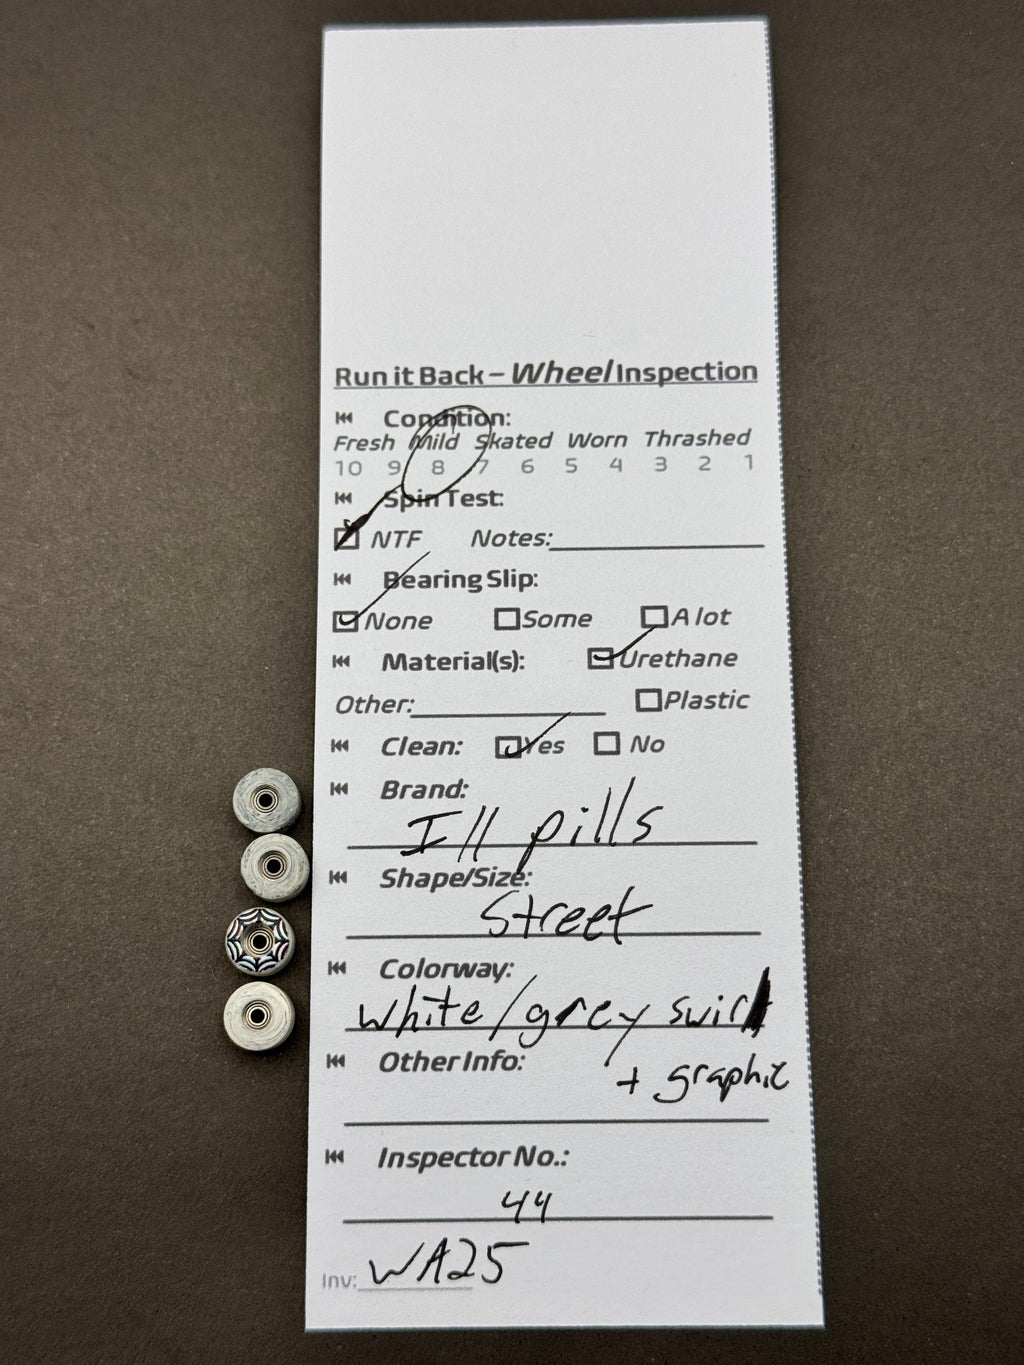 Run it Back – Wheel Inspection
Condition:
Fresh Mild Skated Worn Thrashed
10 9 8 7 6 5 4 3 2 1
Spin Test:
NTF Notes:
Bearing Slip:
None Some A lot
Material(s): Urethane
Other: Plastic
Clean: Yes No
Brand:
Ill pills
Shape/Size:
Street
Colorway:
white/grey swirl
+ graphic
Other Info:
Inspector No.:
44
Inv: WA25